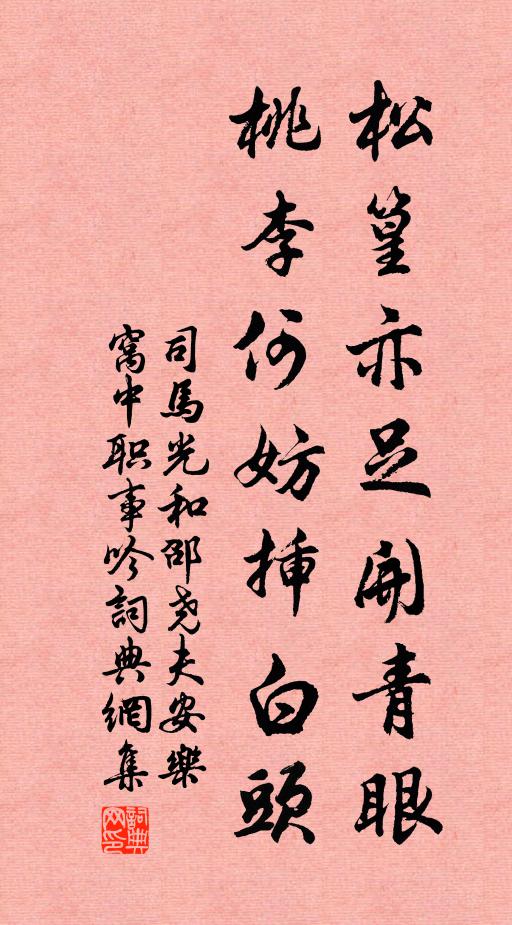 松篁亦足開青眼
桃李何妨插白頭
司馬光和邵尧夫安樂
窩中职事吟詞典網集
詞典网印